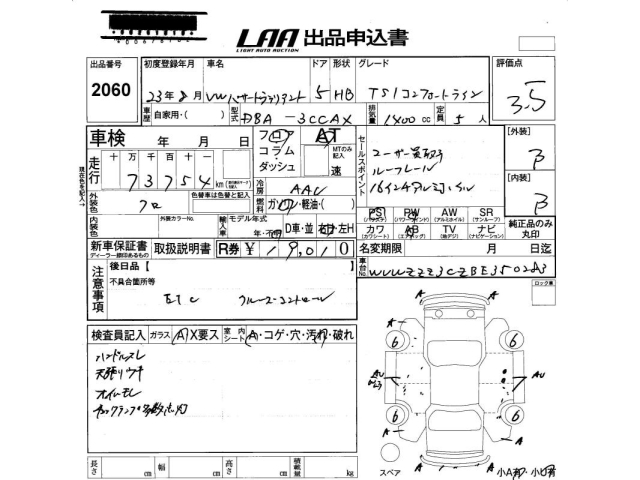 LAA 出品申込書
LIGHT AUTO AUCTION
出品番号 初度登録年月 車名 ドア 形状 グレード 評価点
2060 23年8月 VWパサートヴァリアント 5 HB TSIコンフォートライン 3.5
車歴 自家用・( ) 型式 DBA-3CCAX 排気量 1400cc 定員 5人
車検 年 月 日
フロア
コラム・
ダッシュ
AT
MTのみ記入
速
セールスポイント
ユーザー買取
ルーフレール
16インチアルミホイル
[外装]
B
[内装]
B
走行 十 万 千 百 十 一
73754 km
現在色を記入→
外装色 クロ 色替車は色替と記入
冷房 AAC
燃料 ガソリン・軽油・( )
PS PW AW SR
(パワステ) (パワーウィンド) (アルミホイル) (サンルーフ)
カワ AB TV ナビ
(カワシート) (エアバッグ) (地デジ) (ナビゲーション)
純正品のみ丸印
内装色 外装カラーNo. 輸入車 モデル年式 年・不明 D車・並 右H・左H
新車保証書 取扱説明書 R券 ¥ 19,010
ディーラー捺印あるもの
名変期限 月 日迄
車台No. WVWZZZ3CZBE350283
注意事項
後日品【 】
不具合箇所等
ETC クルーズコントロール
ロック車
検査員記入 ガラス A X要ス 室内シート A・コゲ・穴・汚れ・破れ
ハンドルスレ
天張りウキ
オイルモレ
チェックランプ多数点灯
A A
6 6
AU AU
6 6
A A
A
スペア
小A有 小U有
長さ cm 幅 cm 高さ cm 積載量 kg